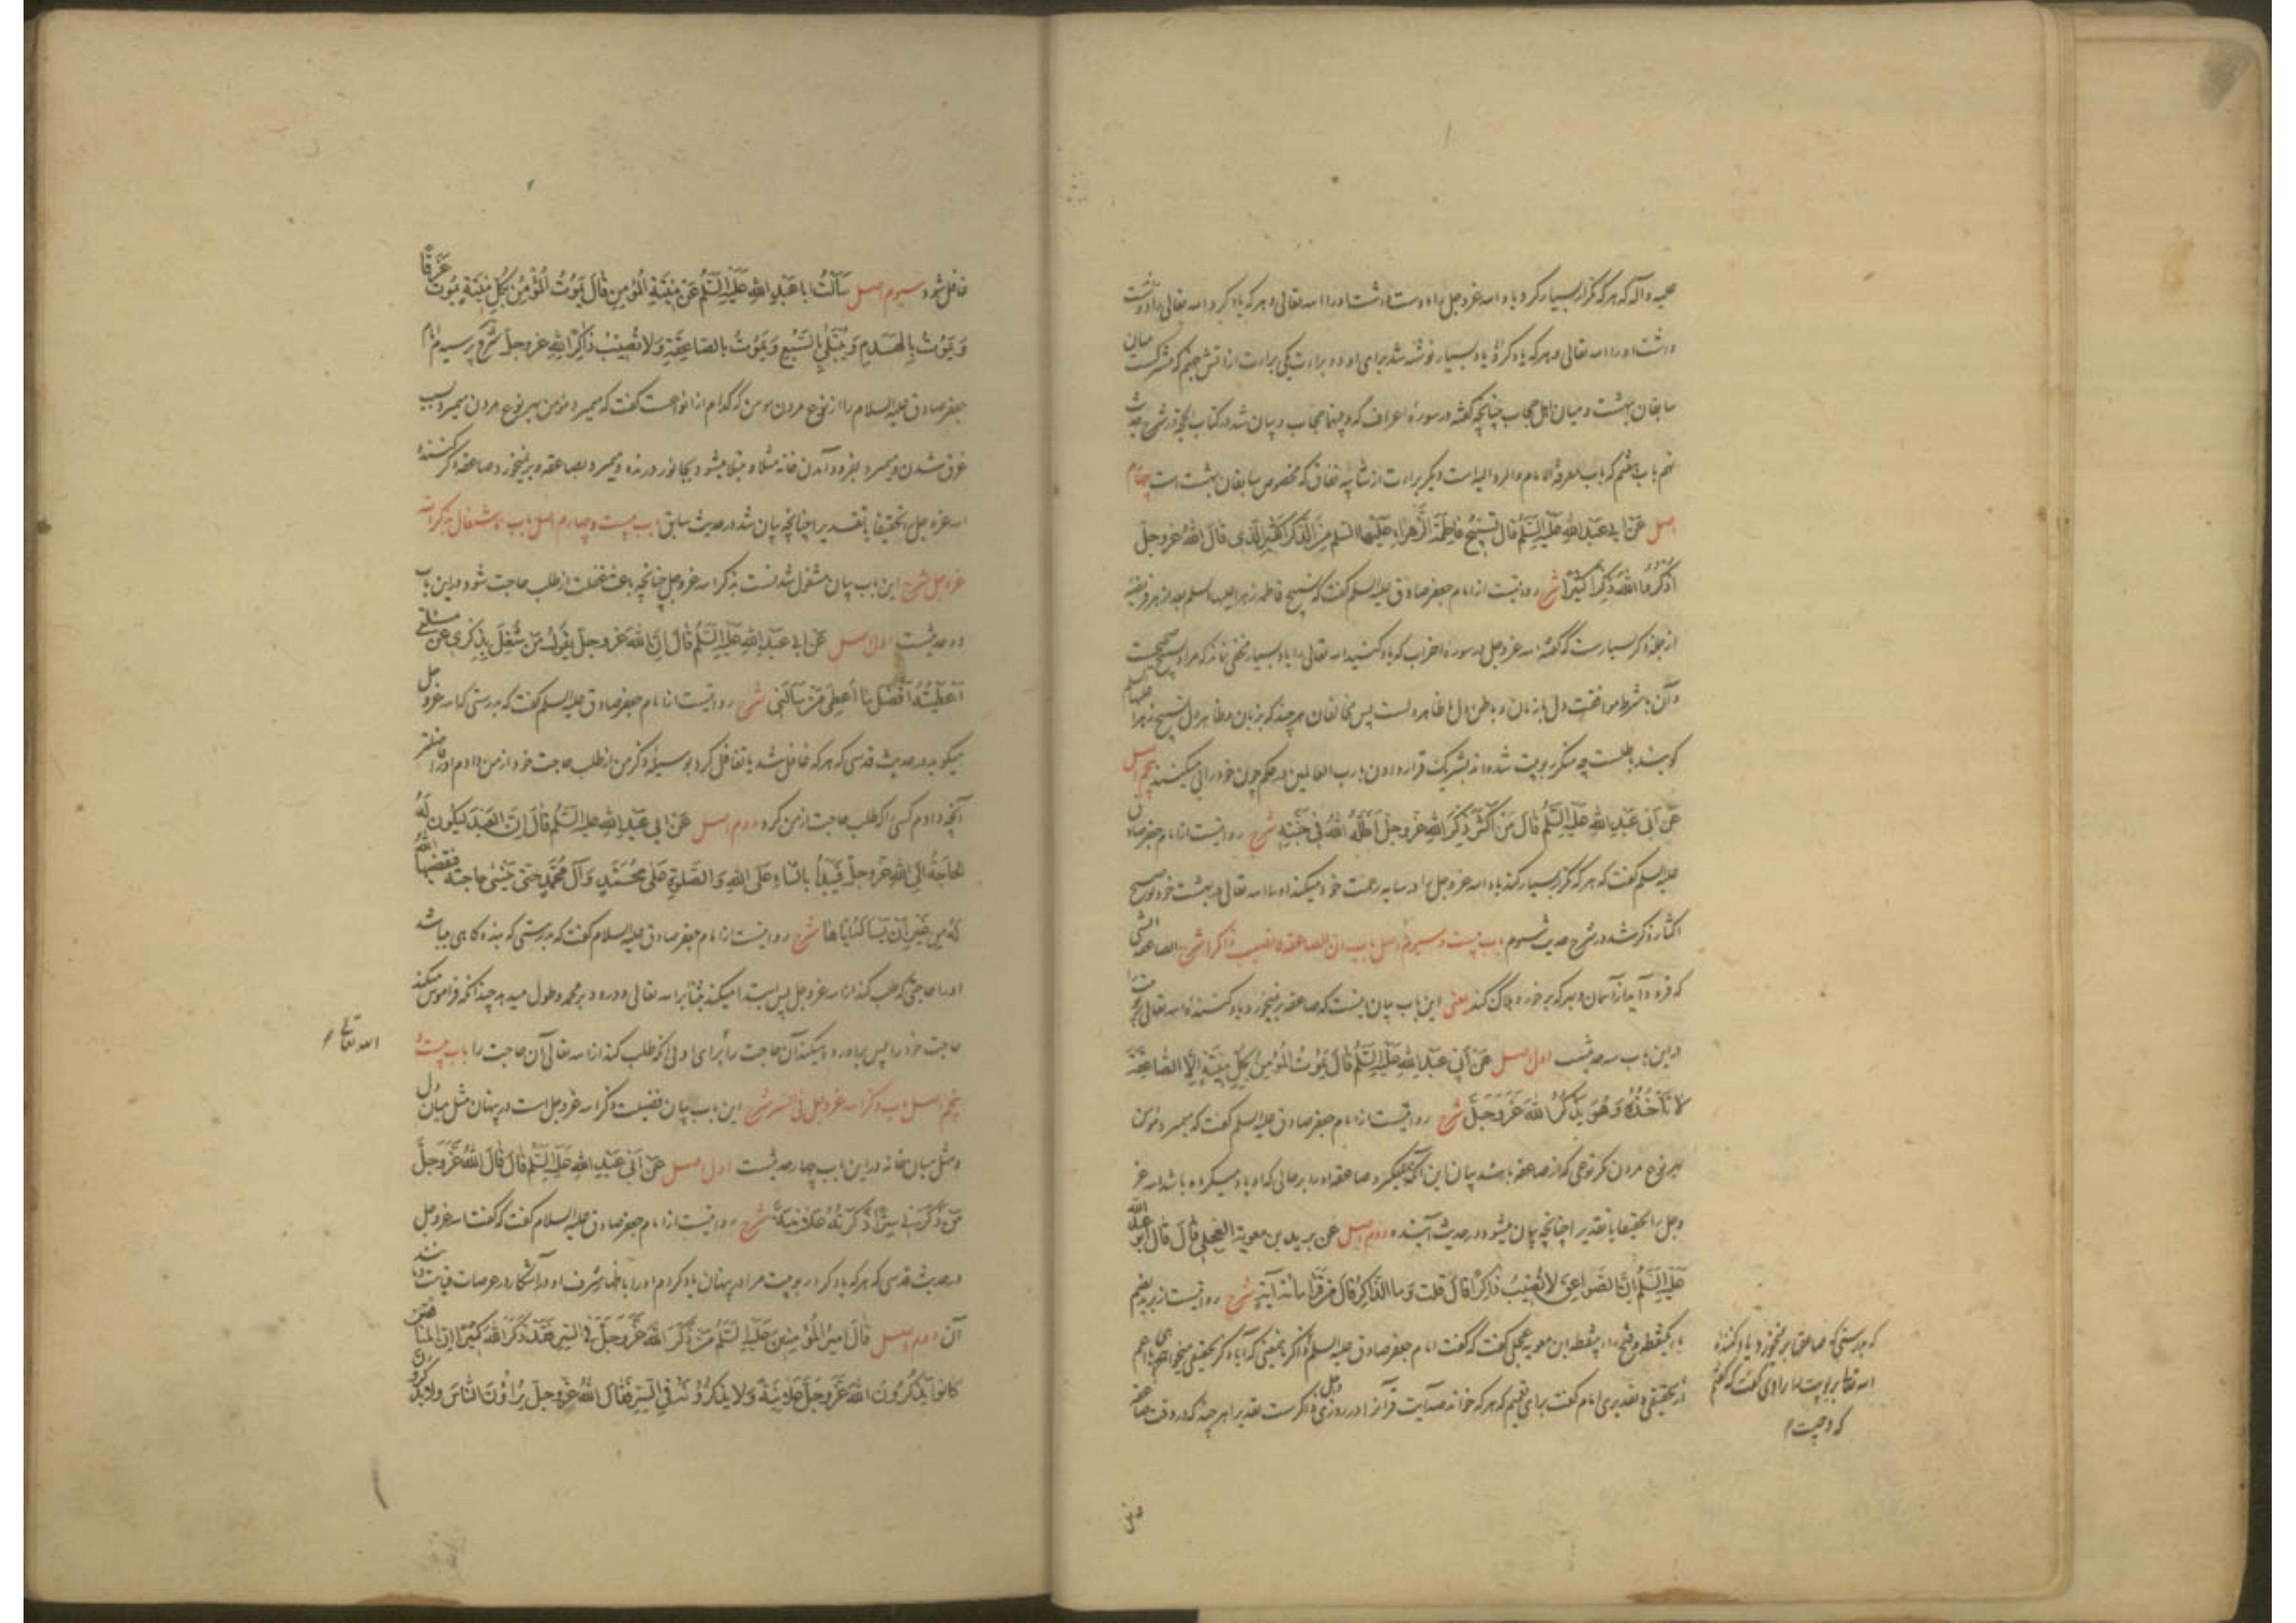 علیه و آله که هر که گزار بسیار کرد یاد الله عزوجل را دوست داشت او را الله تعالی و هر که یاد کرد الله تعالی را دوست
داشت او را الله تعالی و هر که یاد کرد یاد بسیار نوشته شد برای او دو براءت یکی براءت از آتش جهنم که مشترکست میان
سابقان بهشت و میان اهل حجاب چنانچه گفته در سورهٔ اعراف که و بینهما حجاب و بیان شد در کتاب الحجة در شرح حدیث
نهم باب هفتم که باب معرفة الامام و الرد الیه است دیگر براءت از شایبه نفاق که مخصوص سابقان بهشت است چهارم
اصل عَنْ ابی عَبدِ اللهِ عَلَیْهِ السَّلَمُ قالَ تَسْبِیحُ فاطِمَةَ الزَّهراءِ عَلَیْهَا السلم مِنَ الذِّکْرِ الْکَثیرِ الَّذی قالَ اللهُ عَزوجلّ
اُذْکُرُوا اللهَ ذِکْرًا کَثیرًا شرح روایتست از امام جعفر صادق علیه السلم گفت که تسبیح فاطمه زهرا علیها السلم بعد از هر فریضه
از جمله ذکر بسیارست که گفته الله عزوجل در سورهٔ احزاب که یاد کنید الله تعالی را یاد بسیار مخفی نماند که مراد تسبیح صحیحست
و آن بشرط موافقت دل با زبان و باطن با ظاهرست پس مخالفان هر چند که بزبان و ظاهر تسبیح زهرا علیها السلم
گویند باطلست چه منکر ربوبیت شده‌اند بشریک قرار دادن با رب العالمین در حکم چون خودرایی میکنند پنجم اصل
عَنْ اَبی عَبْدِ اللهِ عَلَیْهِ السَّلَمُ قالَ مَنْ اَکْثَرَ ذِکْرَ اللهِ عَزوجلّ اَظَلَّهُ اللهُ فی جَنَّتِهِ شرح روایتست از امام جعفر صادق
علیه السلم گفت که هر که گزار بسیار کند یاد الله عزوجل را در سایه رحمت خود میکند او را الله تعالی در بهشت خود توضیح
اکثار ذکر شد در شرح حدیث سوم باب بیست و سیوم اصل باب ان الصاعقة لا تصیب ذاکرا شرح الصاعقة آتشی
که فرود آید از آسمان و بهر که برخورد هلاک کند یعنی این باب بیان اینست که صاعقه بر نمیخورد بیاد کنندهٔ الله تعالی
درین باب سه حدیثست اول اصل عَنْ اَبی عَبدِ اللهِ عَلَیْهِ السَّلَمُ قالَ یَمُوتُ الْمُؤمِنُ بِکُلِّ مِیتَةٍ اِلَّا الصّاعِقَةَ
لا تَأخُذُهُ وَ هُوَ یَذْکُرُ اللهَ عَزَّ وَجَلَّ شرح روایتست از امام جعفر صادق علیه السلم گفت که میمیرد مؤمن
بهر نوع مردن مگر نوعی که از صاعقه باشد بیان این آنکه نمیگیرد صاعقه او را بر حالی که او یاد میکرده باشد الله عز
وجل را تحقیقا یا تقدیرا چنانچه بیان میشود در حدیث آینده دوم اصل عن برید بن معویة العجلی قالَ قالَ ابو عبد الله
عَلَیْهِ السَّلَمُ اِنَّ الصَّواعِقَ لا تُصیبُ ذاکِرًا قالَ قلت وَ ما الذّاکِرُ قالَ مَنْ قَرَأَ مِائَةَ آیَةٍ شرح روایتست از برید بضم
بای یکنقطه و فتح رای بینقطه ابن معویه عجلی گفت که گفت امام جعفر صادق علیه السلم
از تحقیقی و تقدیری امام گفت برای تعمیم که هر که خواند صد آیت قرآن را در روزی ذاکرست تقدیرا هر چند که در وقت صاعقه
که بدرستی که صاعقها بر نمیخورد بیاد کنندهٔ
الله تعالی بربوبیت راوی گفت که گفتم
که و چیست
غافل شود سیوم اصل سَألْتُ ابا عَبْدِ اللهِ عَلَیْهِ السَّلَمُ عَنْ مِیتَةِ الْمُؤمِنِ قالَ یَمُوتُ الْمُؤْمِنُ بِکُلِّ مِیتَةٍ یَمُوتُ غَرَقًا
وَ یَمُوتُ بِالْهَدْمِ وَ یُبْتَلی بِالسَّبُعِ وَ یَمُوتُ بِالصّاعِقَةِ وَ لا تُصیبُ ذاکِرَ اللهِ عزوجلّ شرح پرسیدم امام
جعفر صادق علیه السلام را از نوع مردن مومن که کدام از انواعست گفت که میمیرد مؤمن بهر نوع مردن میمیرد بسبب
غرق شدن و میمیرد بفرود آمدن خانه مثلا و مبتلا میشود بجانور درنده و میمیرد بصاعقه و بر نمیخورد صاعقه ذکر کنندهٔ
الله عزوجل را تحقیقا یا تقدیرا چنانچه بیان شد در حدیث سابق باب بیست و چهارم اصل باب الاشتغال بذکر الله
عزوجل شرح این باب بیان مشغول شدنست بذکر الله عزوجل چنانچه باعث غفلت از طلب حاجت شود درین باب
دو حدیثست اول اصل عَنْ ابی عَبدِ اللهِ عَلَیْهِ السَّلَمُ قالَ اِنَّ اللهَ عَزوجلّ یَقُولُ مَنْ شُغِلَ بِذِکْری عَنْ مسئلتی
اَعْطَیْتُهُ اَفْضَلَ ما اُعطی مَنْ سَألَنی شرح روایتست از امام جعفر صادق علیه السلم گفت که بدرستی که الله عزوجل
میگوید در حدیث قدسی که هر که غافل شد یا تغافل کرد بوسیلهٔ ذکر من از طلب حاجت خود از من دادم او را
آنچه دادم کسی را که طلب حاجت از من کرد دوم اصل عَنْ ابی عَبْدِ اللهِ علیه السَّلَمُ قالَ اِنَّ الْعَبْدَ لَیَکُونُ لَهُ
الحاجَةُ اِلَی اللهِ عَزوجلّ فَیَبْدَأُ بِالثَّناءِ عَلَی اللهِ وَ الصَّلوةِ عَلی مُحَمَّدٍ وَ آلِ مُحَمَّدٍ حَتّی یَنْسی حاجته فیقضیها الله
لَهُ مِنْ غَیْرِ اَنْ یَسْألَهُ اِیّاها شرح روایتست از امام جعفر صادق علیه السلام گفت که بدرستی که بنده گاهی میباشد
او را حاجتی که طلب کند از الله عزوجل پس ابتدا میکند بثنا بر الله تعالی و درود بر محمد و طول میدهد چندانکه فراموش میکند
حاجت خود را پس برآورده میکند آن حاجت را برای او بی آنکه طلب کند از الله تعالی آن حاجت را باب بیست و
الله تعالی
پنجم اصل باب ذکر الله عزوجل فی السر شرح این باب بیان فضیلت ذکر الله عزوجل است در پنهان مثل میان دل
و مثل میان خانه درین باب چهار حدیثست اول اصل عَنْ اَبی عَبْدِ اللهِ عَلَیْهِ السَّلَمُ قالَ قالَ اللهُ عَزَّ وَجَلَّ
مَنْ ذَکَرَنی سِرًّا ذَکَرْتُهُ عَلانِیَةً شرح روایتست از امام جعفر صادق علیه السلام گفت که گفت الله عزوجل
در حدیث قدسی که هر که یاد کرد ربوبیت مرا در پنهان یاد کردم او را باظهار شرف او در آشکارا در عرصات قیامت و مانند
آن دوم اصل قالَ اَمیرُ الْمُؤْمِنینَ عَلَیْهِ السَّلَمُ مَنْ ذَکَرَ اللهَ عَزَّ وَجَلَّ فی السِّرِّ فَقَدْ ذَکَرَ اللهَ کَثیرًا اِنَّ المنافقین
کانُوا یَذْکُرُونَ اللهَ عَزَّ وَجَلَّ عَلانِیَةً وَ لا یَذْکُرُونَهُ فی السِّرِّ فَقالَ اللهُ عَزوجلّ یُراؤُنَ النّاسَ وَ لا یذکرون